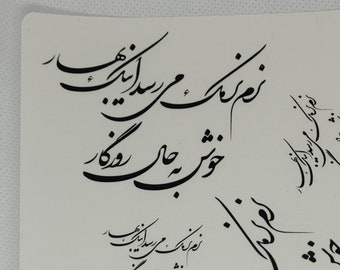 نرم نرمک می رسد اینک بهار
خوش به حال روزگار
نرم نرمک می رسد اینک بهار
نرم
خوش
نرم نرمک
خوش به